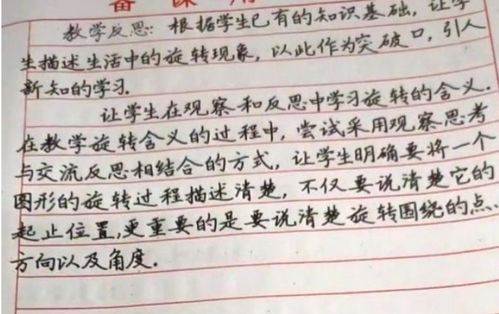 备课用
教学反思：根据学生已有的知识基础，让学
生描述生活中的旋转现象，以此作为突破口，引人
新知的学习．
让学生在观察和反思中学习旋转的含义．
在教学旋转含义的过程中，尝试采用观察思考
与交流反思相结合的方式，让学生明确要将一个
图形的旋转过程描述清楚，不仅要说清楚它的
起止位置，更重要的是要说清楚旋转围绕的点、
方向以及角度．